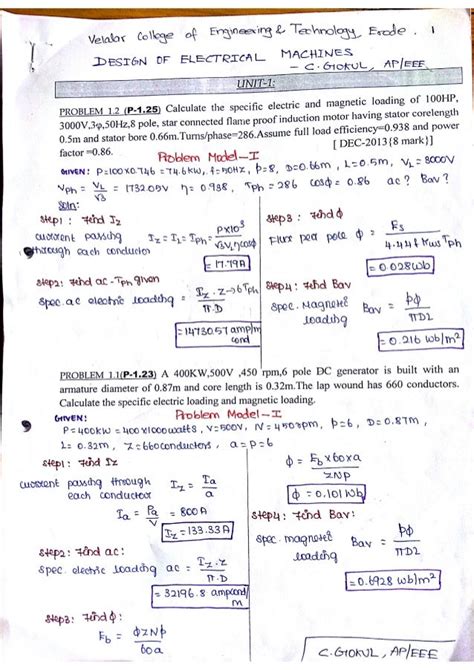 Velalar College of Engineering & Technology, Erode. 1
DESIGN OF ELECTRICAL MACHINES
- C. GOKUL, AP/EEE
UNIT-1:
PROBLEM 1.2 (P-1.25) Calculate the specific electric and magnetic loading of 100HP,
3000V,3φ,50Hz,8 pole, star connected flame proof induction motor having stator corelength
0.5m and stator bore 0.66m.Turns/phase=286.Assume full load efficiency=0.938 and power
factor =0.86. [ DEC-2013{8 mark}]
Problem Model-I
GIVEN: P=100x0.746 = 74.6kw, f=50HZ, p=8, D=0.66m, L=0.5m, VL=3000V
Vph = VL/√3 = 1732.05V η=0.938, Tph=286 cosφ=0.86 ac? Bav?
Soln:
Step1: Find Iz
current passing through each conductor Iz=IL=Iph= Px10³/√3VLηcosφ
= 17.79A
Step2: Find ac - Tph given
Spec. ac electric loading = Iz.Z→6Tph/π.D
= 14730.57 amp/m cond
Step3: Find φ
Flux per pole φ = Es/4.44 f Kws Tph
= 0.028wb
Step4: Find Bav
Spec. Magnetic loading Bav = pφ/πDL
= 0.216 wb/m²
PROBLEM 1.1(P-1.23) A 400KW,500V ,450 rpm,6 pole DC generator is built with an
armature diameter of 0.87m and core length is 0.32m.The lap wound has 660 conductors.
Calculate the specific electric loading and magnetic loading.
Problem Model-I
GIVEN:
P=400KW=400x1000watts, V=500V, N=450rpm, p=6, D=0.87m,
L=0.32m, Z=660conductors, a=p=6
Step1: Find Iz
current passing through each conductor Iz = Ia/a
Ia = Pa/V = 800A
Iz=133.33A
Step2: Find ac:
Spec. electric loading ac = Iz.Z/π.D
= 32196.8 ampcond/m
Step3: Find φ:
Eb = φZNp/60a
φ = Eb x60xa/ZNp
φ = 0.101Wb
Step4: Find Bav:
Spec. magnetic loading Bav = pφ/πDL
=0.6928 wb/m²
C.GOKUL, AP/EEE